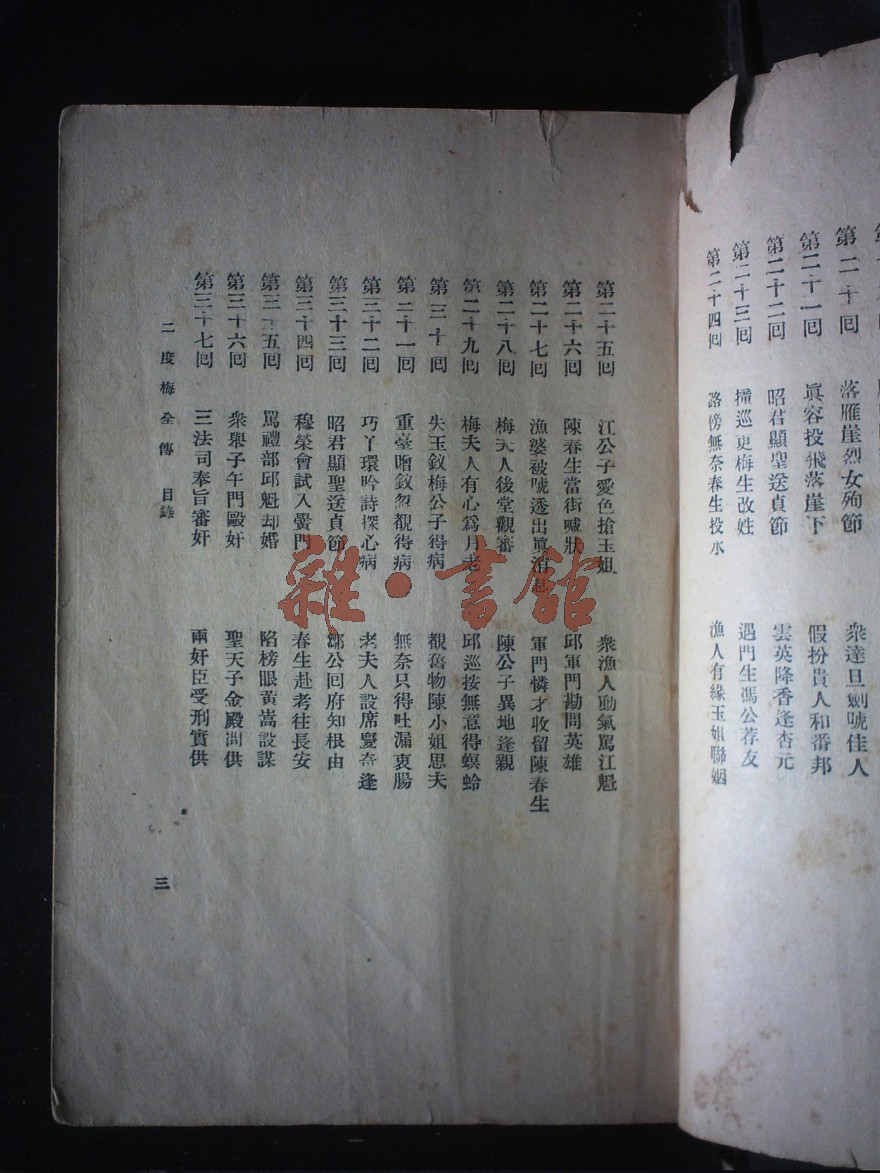 第二十回 落雁崖烈女殉節 衆達旦劍唬佳人
第二十一回 眞容投飛落崖下 假扮貴人和番邦
第二十二回 昭君顯聖送貞節 雲英降香逢杏元
第二十三回 撞巡更梅生改姓 遇門生馮公荐友
第二十四回 路傍無奈春生投水 漁人有緣玉姐聯姻
第二十五回 江公子愛色搶玉姐 衆漁人動氣罵江魁
第二十六回 陳春生當街喊狀 邱軍門勘問英雄
第二十七回 漁婆被唬透出眞消息 軍門憐才收留陳春生
第二十八回 梅夫人後堂觀審 陳公子異地逢親
第二十九回 梅夫人有心爲月老 邱巡按無意得螟蛉
第三十回 失玉釵梅公子得病 觀舊物陳小姐思夫
第三十一回 重臺贈釵忽覩得病 無奈只得吐漏衷腸
第三十二回 巧丫環吟詩探心病 老夫人設席慶奇逢
第三十三回 昭君顯聖送貞節 鄒公回府知根由
第三十四回 穆榮會試入黌門 春生赴考往長安
第三十五回 罵禮部邱魁却婚 陷榜眼黃嵩設謀
第三十六回 衆舉子午門毆奸 聖天子金殿問供
第三十七回 三法司奉旨審奸 兩奸臣受刑實供
二度梅全傳 目錄 三
雜·書館